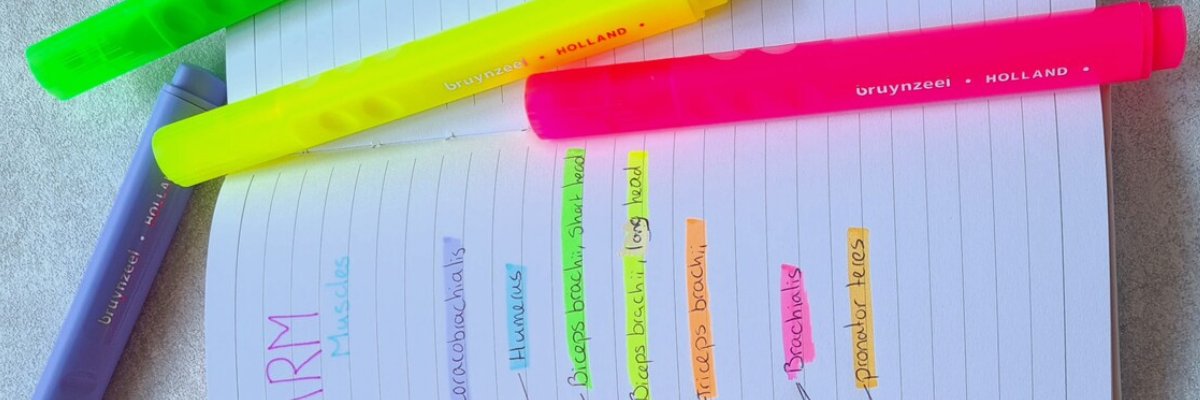 bruynzeel • HOLLAND •
bruynzeel • HOLLAND •
bruynzeel • HOLLA
ARM
Muscles
coracobrachialis
Humerus
Biceps brachii, Short head
Biceps brachii, long head
Triceps brachii,
Brachialis
pronator teres